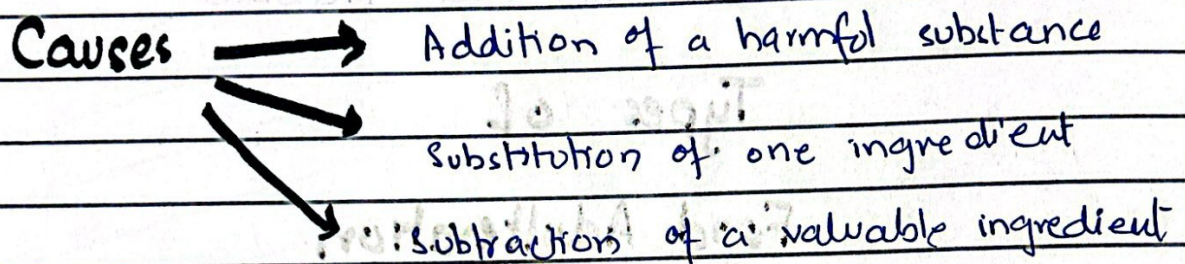 Causes → Addition of a harmful substance
Substitution of one ingredient
Subtraction of a valuable ingredient